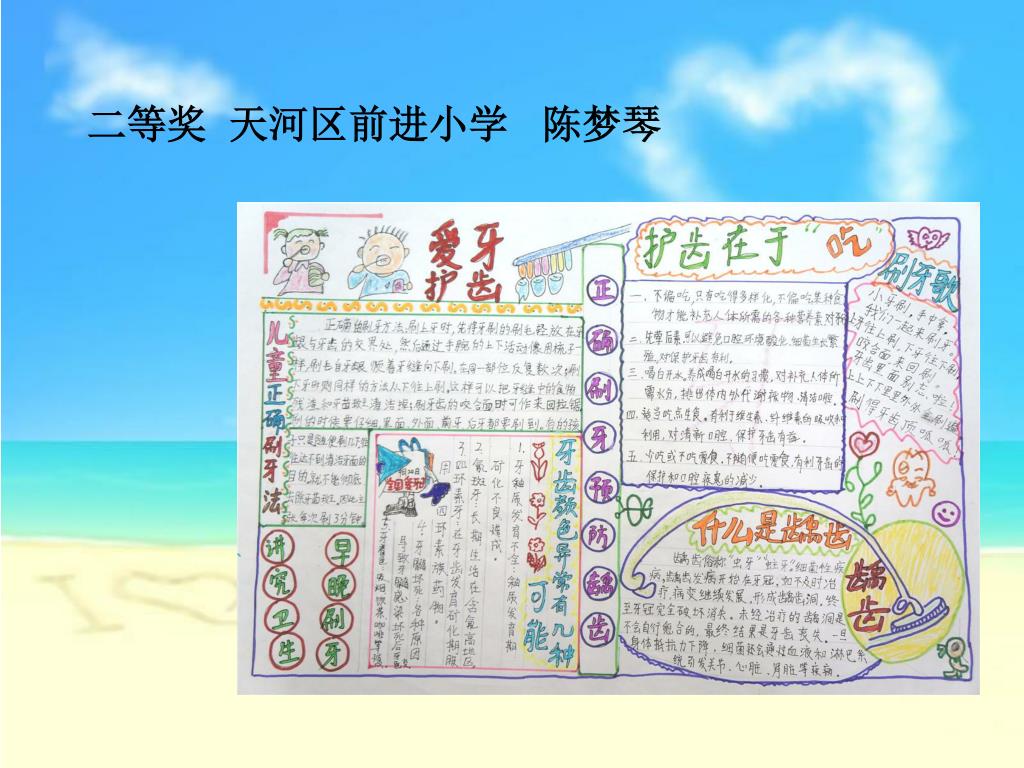 二等奖 天河区前进小学 陈梦琴
爱牙
护齿
儿童正确刷牙法
正确的刷牙方法,刷上牙时,先得牙刷的刷毛轻放在牙
龈与牙齿的交界处,然后通过手腕的上下活动像用梳子一
样,刷毛自牙龈顺着牙缝向下刷。在同一部位反复数次;刷
下牙而则同样的方法从下往上刷。这样可以把牙缝中的食物
残渣和牙菌斑
清洁;刷牙齿的咬合面时可作来回拉锯
每次刷3分钟
讲究卫生
早晚刷牙
全国爱牙日
牙齿颜色异常有几种
可能
1.牙釉质发育不全:釉质发育期
矿化不良造成。
2.氟斑牙:长期生活在含氟高地区
3.四环素牙:在牙齿发育矿化期服
用四环素族药物。
4.牙髓坏死:各种原因
正确刷牙预防龋齿
护齿在于“吃”
一、不偏吃,只有吃得多样化,不偏吃某种食
物才能补充人体所需的各种营养素对
二、
后素,可以避免口腔环境酸化、细菌生长繁
殖,对保护牙齿有利。
三、喝白开水。养成喝白开水的习惯,对补充人体所
需水分,排出体内外代谢秽物,清洁口腔。
四、适当吃点生食。有利于维生素、纤维素的吸收和
利用,对清新口腔,保护牙齿有益。
五、少吃或不吃零食。不随便吃零食,有利牙齿的
保护和口腔疾患的减少。
刷牙歌
小牙刷,手中拿,
我们一起来刷牙。
上牙往下刷,下牙往上刷
咬合面来回刷。
牙齿里面别忘
上上下下里里外外
刷得牙齿顶呱呱
什么是龋齿
龋齿俗称“虫牙”“蛀牙”细菌性疾
病,龋齿发病开始在牙冠,如不及时治
疗,病变继续发展,形成龋齿洞,终
至牙冠完全破坏消失。未经治疗的龋洞是
不会自行愈合的,最终结果是牙齿丧失。一旦
身体抵抗力下降,细菌还会通过血液和淋巴系
统引发关节、心脏、肾脏等疾病。
龋齿